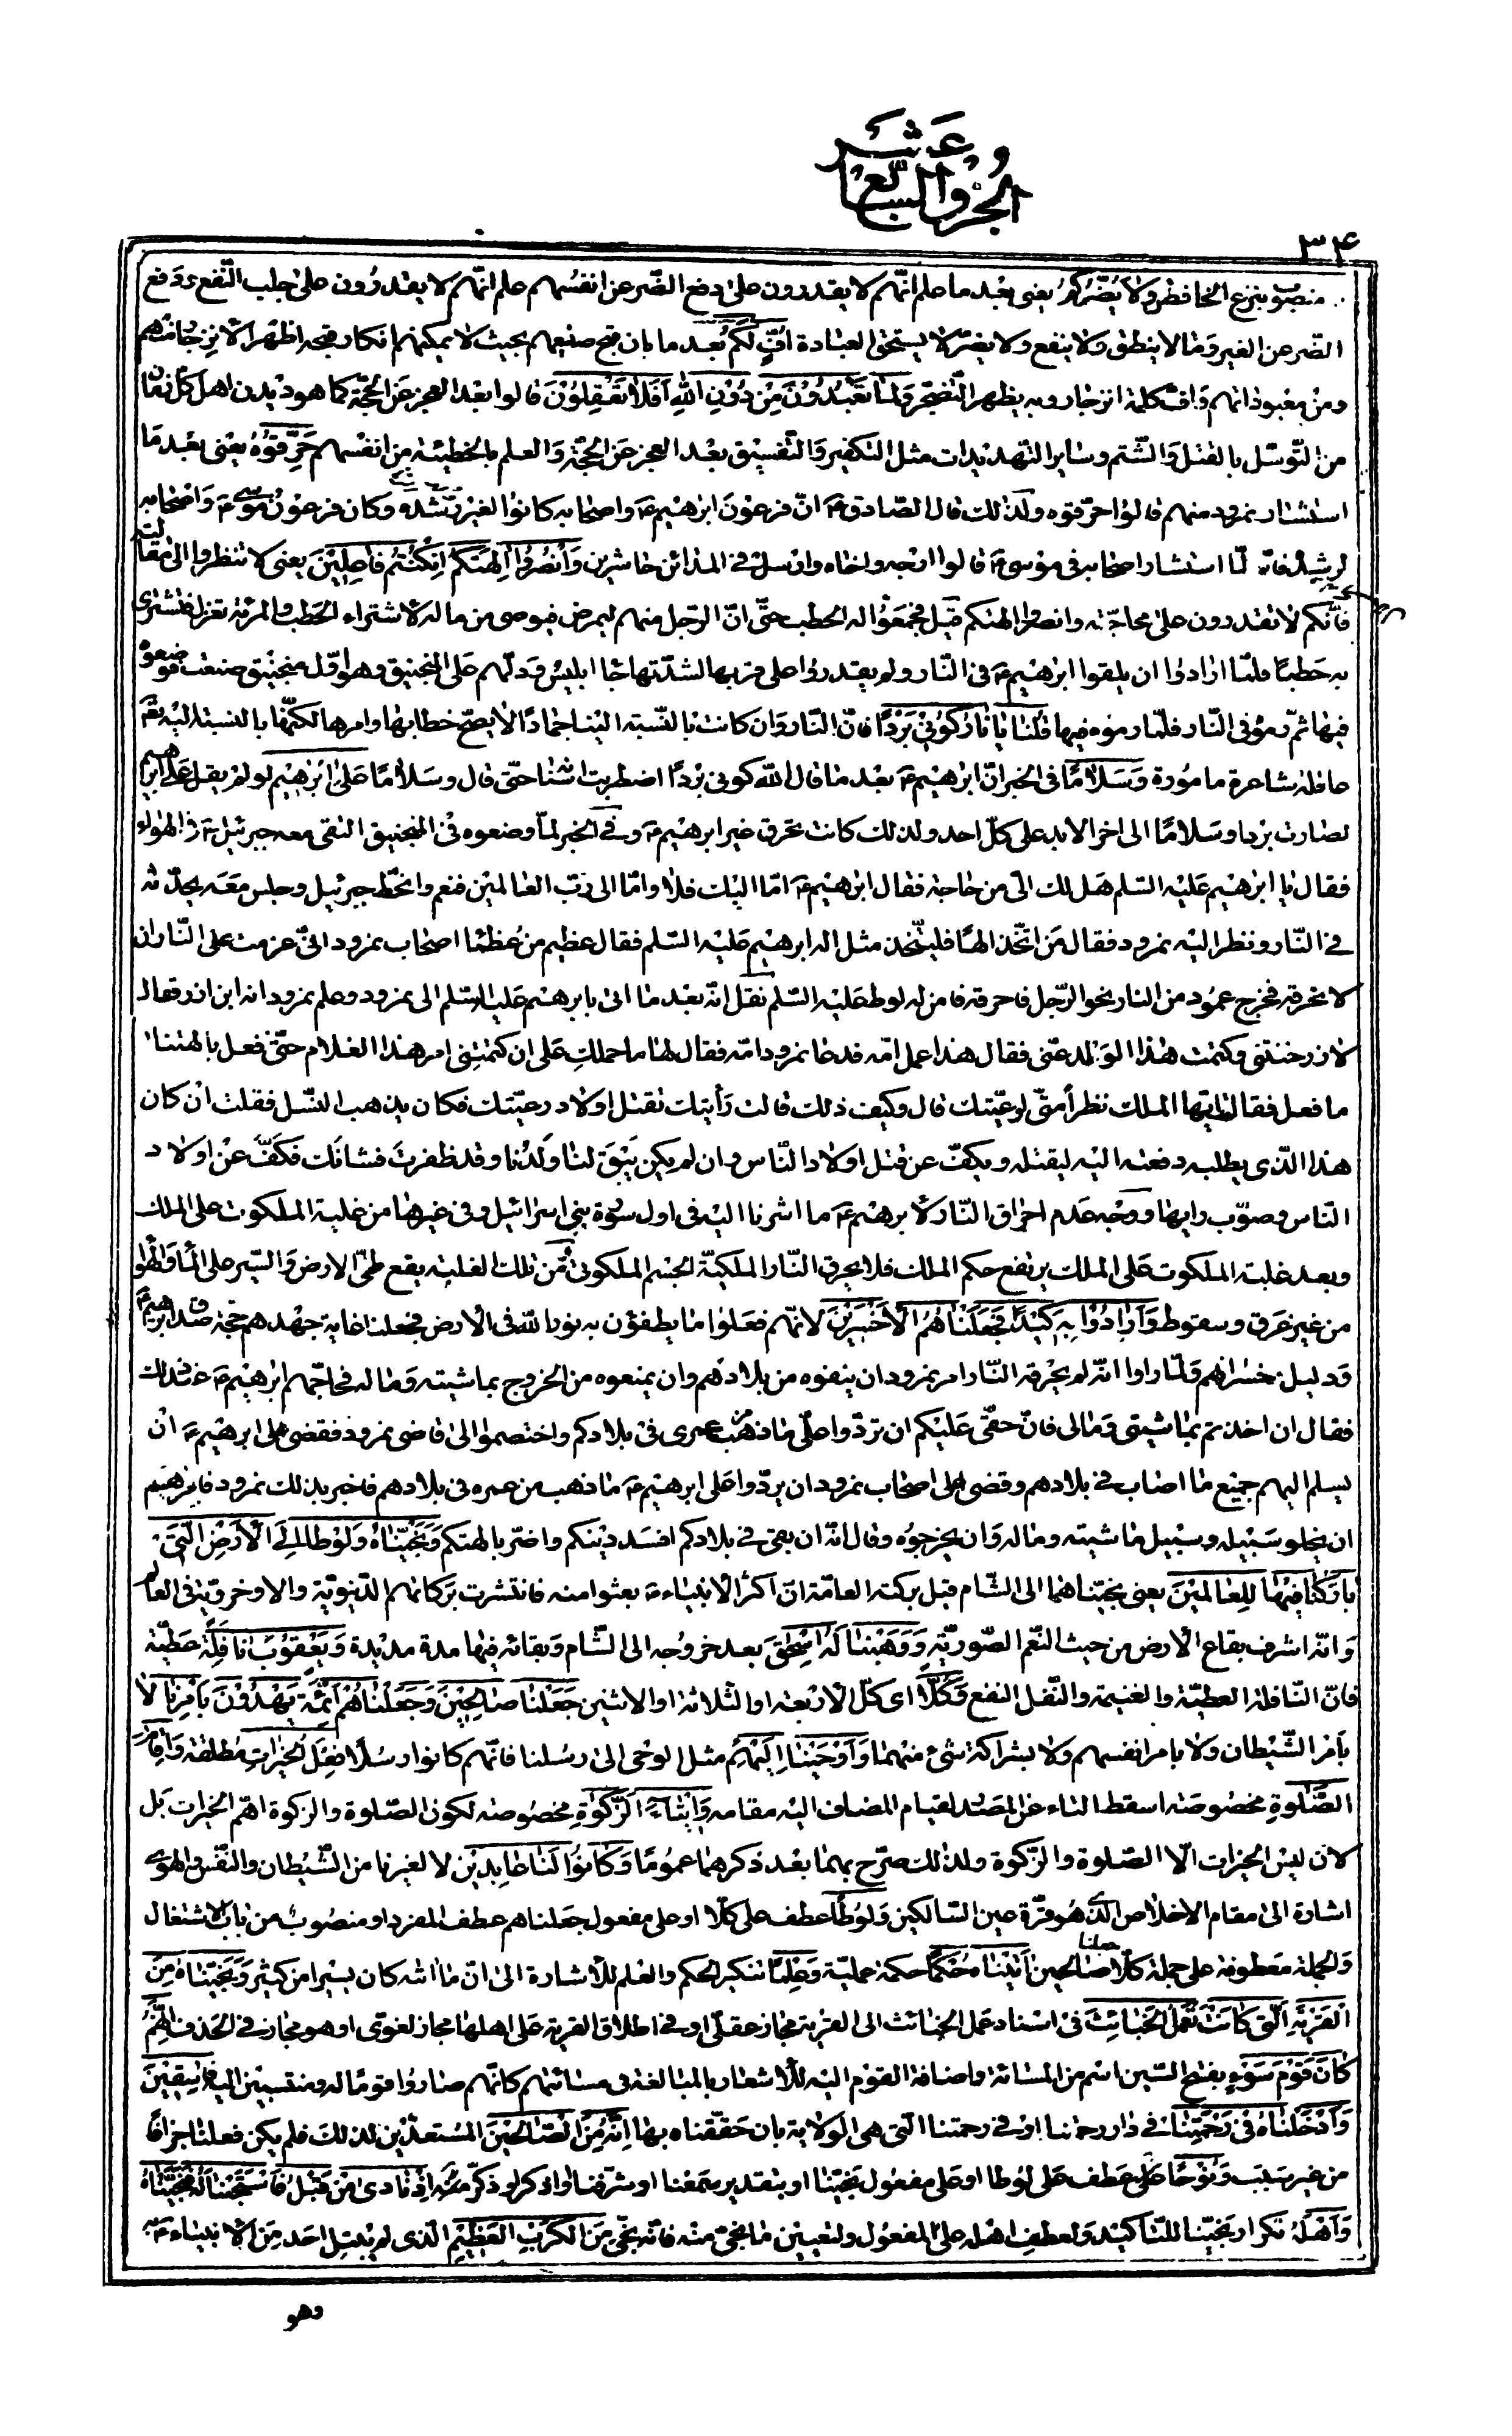 الجزؤ السابع عشر
٣٤
منصوب بنزع الخافض وَلا يَضُرُّكُمْ يعنى بعد ما علم انّهم لا يقدرون على دفع الضّر عن انفسهم علم انّهم لا يقدرون على جلب النّفع ودفع
الضّر عن الغير وما لا ينطق ولا ينفع ولا يضرّ لا يستحق العبادة اُفٍّ لَكُمْ بعد ما بان قبح صنيعهم بحيث لا يمكنهم انكار قبحه اظهر الانزجار منهم
ومن معبوداتهم واف كلمة انزجار وبه يظهر التّضجّر وَلِمَا تَعْبُدُونَ مِنْ دُونِ اللهِ اَفَلا تَعْقِلُونَ قالوا بعد العجز عن الحجّة كما هو ديدن اهل كلّ زمان
من التّوسّل بالقتل والشّتم وساير التّهديدات مثل التكفير والتّفسيق بعد العجز عن الحجّة والعلم بالخطيئة من انفسهم حَرِّقُوهُ يعنى بعد ما
استشار نمرود منهم قالوا حرّقوه ولذلك قال الصّادق ع انّ فرعون ابرهيم ع واصحابه كانوا لغير رشده وكان فرعون موسى ع واصحابه
لرشده فانّه لمّا استشار اصحابه فى موسى ع قالوا ارجه واخاه وارسل فى المدائن حاشرين وَانْصُرُوا الِهَتَكُمْ اِنْ كُنْتُمْ فاعِلينَ يعنى لا تنظروا الى مقالته
فانّكم لا تقدرون على محاجّته وانصروا الهتكم قيل فجمعوا له الحطب حتّى انّ الرّجل منهم ليمرض فيوصى من ماله لاشتراء الحطب والمرئة تغزل فتشترى
به حطبًا فلمّا ارادوا ان يلقوا ابرهيم ع فى النّار ولم يقدروا على قربها لشدّتها جاء ابليس فدلّهم على المنجنيق وهو اوّل منجنيق صنعت فوضعوه
فيها ثمّ رموه فى النّار فلمّا رموه فيها قُلْنا يا نارُ كُونى بَرْدًا فانّ النّار وان كانت بالنّسبة الينا جمادًا لا يصحّ خطابها وامرها لكنّها بالنسبة اليه تع
عاقلة شاعرة مامورة وَسَلامًا فى الخبر انّ ابرهيم ع بعد ما قال الله كونى بردًا اضطربت اسنانه حتّى قال وسلامًا عَلى اِبْرهيمَ لو لم يقل على ابرهيم
لصارت بردا وسلامًا الى اخر الابد على كلّ احد ولذلك كانت تحرق غير ابرهيم ع وفى الخبر لمّا وضعوه فى المنجنيق التقى معه جبرئيل ع فى الهواء
فقال يا ابرهيم عليه السّلم هل لك الىّ من حاجة فقال ابرهيم ع امّا اليك فلا وامّا الى ربّ العالمين فنعم وانحطّ جبرئيل وجلس معه يحدّثه
فى النّار ونظر اليه نمرود فقال من اتّخذ الهًا فليتّخذ مثل اله ابرهيم عليه السّلم فقال عظيم من عظماء اصحاب نمرود انّى عزمت على النّار ان
لا تحرقه فخرج عمود من النار نحو الرّجل فاحرقه فامن له لوط عليه السّلم نقل انّه بعد ما اتى بابرهيم عليه السّلم الى نمرود وعلم نمرود انه ابن ازر قال
لازر خنتنى وكتمت هذا الولد عنّى فقال هذا عمل امّه فدعا نمرود امّه فقال لها ما حملك على ان كتمتنى امر هذا الغلام حتّى فعل بالهتنا
ما فعل فقالت ايّها الملك نظراً منّى لرعيّتك قال وكيف ذلك قالت رأيتك تقتل اولاد رعيّتك فكان يذهب النّسل فقلت ان كان
هذا الّذى يطلبه دفعته اليه ليقتله ويكفّ عن قتل اولاد النّاس وان لم يكن يبق لنا ولدنا وقد ظفرت فشانك فكفّ عن اولاد
النّاس وصوّب رايها ووجه عدم احراق النّار لابرهيم ع ما اشرنا اليه فى اول سورة بنى اسرائيل وفى غيرها من غلبة الملكوت على الملك
وبعد غلبة الملكوت على الملك يرتفع حكم الملك فلا يحرق النّار الملكيّة الجسم الملكوتىّ ومن تلك الغلبة يقع طىّ الارض والسّير على الماء والهواء
من غير غرق وسقوط وَاَرادُوا بِه كَيْدًا فَجَعَلْناهُمُ الْاَخْسَرينَ لانّهم فعلوا ما يطفؤن به نور الله فى الارض فجعلنا غاية جهدهم حجّة صدق ابرهيم ع
ودليل خسرانهم ولمّا راوا انّه لم يحرقه النّار امر نمرود ان ينفوه من بلادهم وان يمنعوه من الخروج بماشيته وماله فحاجّهم ابرهيم ع عند ذلك
فقال ان اخذتم بماشيتى ومالى فانّ حقّى عليكم ان تردّوا علىّ ما ذهب من عمرى فى بلادكم واختصموا الى قاضى نمرود فقضى على ابرهيم ع ان
يسلم اليهم جميع ما اصاب فى بلادهم وقضى على اصحاب نمرود ان يردّوا على ابرهيم ع ما ذهب من عمره فى بلادهم فاخبر بذلك نمرود فامرهم
ان يخلو سبيله وسبيل ماشيته وماله وان يخرجوه وقال انّه ان بقى فى بلادكم افسد دينكم واضرّ بالهتكم وَنَجَّيْناهُ وَلُوطًا اِلَى الْاَرْضِ الَّتى
بارَكْنا فيها لِلْعالَمينَ يعنى نجّيناهما الى الشّام قيل بركته العامّة انّ اكثر الانبياء ع بعثوا منه فانتشرت بركاتهم الدّنيويّة والاخرويّة فى العالم
وانّه اشرف بقاع الارض من حيث النّعم الصّوريّة وَوَهَبْنا لَهُ اِسْحقَ بعد خروجه الى الشّام وبقائه فيها مدة مديدة وَيَعْقُوبَ نافِلَةً عطيّة
فانّ النّافلة العطيّة والغنيمة والنّفل النفع وَكُلّاً اى كلّ الاربعة او الثّلاثة او الاثنين جَعَلْنا صالِحينَ وَجَعَلْناهُمْ اَئِمَّةً يَهْدُونَ بِاَمْرِنا لا
بامر الشّيطان ولا بامر انفسهم ولا بشراكة شىء منهما وَاَوْحَيْنا اِلَيْهِمْ مثل الوحى الى رسلنا فانّهم كانوا رسلاً فِعْلَ الْخَيْراتِ مطلقة وَاِقامَ
الصَّلوةِ مخصوصة اسقط التاء عن المصدر لقيام المضاف اليه مقامه وَايتاءَ الزَّكوةِ مخصوصة لكون الصّلوة والزكوة اهمّ الخيرات بل
لان ليس الخيرات الّا الصّلوة والزّكوة ولذلك صرّح بهما بعد ذكرهما عمومًا وَكانُوا لَنا عابِدينَ لا لغيرنا من الشّيطان والنّفس والهوى
اشارة الى مقام الاخلاص الّذى هو قرّة عين السّالكين وَلُوطًا عطف على كلّا او على مفعول جعلناهم عطف المفرد او منصوب من باب الاشتغال
والجملة معطوفة على جملة كلّا جعلنا صالحين اتَيْناهُ حُكْمًا حكمة عمليّة وَعِلْمًا تنكير الحكم والعلم للاشارة الى انّ ما اتاه كان يسيرا من كثير وَنَجَّيْناهُ مِنَ
الْقَرْيَةِ الَّتى كانَتْ تَعْمَلُ الْخَبائِثَ فى اسناد عمل الخبائث الى القرية مجاز عقلىّ او فى اطلاق القرية على اهلها مجاز لغوىّ او هو مجاز فى الحذف اِنَّهُمْ
كانُوا قَوْمَ سَوْءٍ بفتح السّين اسم من المسائة واضافة القوم اليه للاشعار بالمبالغة فى مسائتهم كانّهم صاروا قومًا له ومنتسبين اليه فاسِقينَ
وَاَدْخَلْناهُ فى رَحْمَتِنا فى دار رحمتنا او فى رحمتنا الّتى هى الولاية بان حقّقناه بها اِنَّهُ مِنَ الصّالِحينَ المستعدّين لذلك فلم يكن فعلنا جزافًا
من غير سبب وَنُوحًا عطف على لوطا او على مفعول نجّينا او بتقدير سمعنا او شرّفنا او اذكر او ذكّر اِذْ نادى مِنْ قَبْلُ فَاسْتَجَبْنا لَهُ فَنَجَّيْناهُ
وَاَهْلَهُ تكرار نجّينا للتّاكيد ولعطف اهله على المفعول ولتعيين ما نجى منه فانّه نجّى مِنَ الْكَرْبِ الْعَظيمِ الّذى لم يبتل احد من الانبياء ع به
وهو